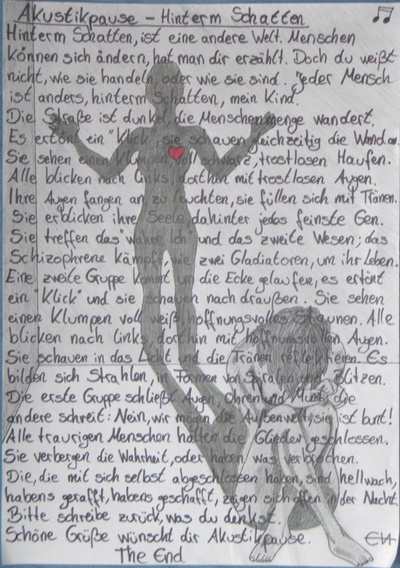 Akustikpause – Hinterm Schatten
Hinterm Schatten, ist eine andere Welt. Menschen
können sich ändern, hat man dir erzählt. Doch du weißt
nicht, wie sie handeln, oder wie sie sind. Jeder Mensch
ist anders, hinterm Schatten, mein Kind.
Die Straße ist dunkel, die Menschenmenge wandert.
Es ertönt ein "Klick", sie schauen gleichzeitig die Wand an.
Sie sehen einen Klumpen voll schwarz, trostlosen Haufen.
Alle blicken nach links, dorthin mit trostlosen Augen.
Ihre Augen fangen an zu leuchten, sie füllen sich mit Tränen.
Sie erblicken ihre Seele, dahinter jedes feinste Gen.
Sie treffen das "wahre Ich" und das zweite Wesen; das
Schizophrene kämpft wie zwei Gladiatoren, um ihr Leben.
Eine zweite Gruppe kommt um die Ecke gelaufen, es ertönt
ein "Klick" und sie schauen nach draußen. Sie sehen
einen Klumpen voll weiß, hoffnungsvolles Staunen. Alle
blicken nach links, dorthin mit hoffnungsvollen Augen.
Sie schauen in das Licht und die Tränen reflektieren. Es
bilden sich Strahlen, in Formen von Spiralen und Blitzen.
Die erste Gruppe schließt Augen, Ohren und Mund, die
andere schreit: Nein, wir die Außenwelt, sie ist bunt!
Alle traurigen Menschen halten die Glieder geschlossen.
Sie verbergen die Wahrheit, oder haben was verbrochen.
Die, die mit sich selbst abgeschlossen haben, sind hellwach,
habens gerafft, habens geschafft, zeigen sich offen in der Nacht.
Bitte schreibe zurück, was du denkst.
Schöne Grüße wünscht dir Akustikpause.
The End